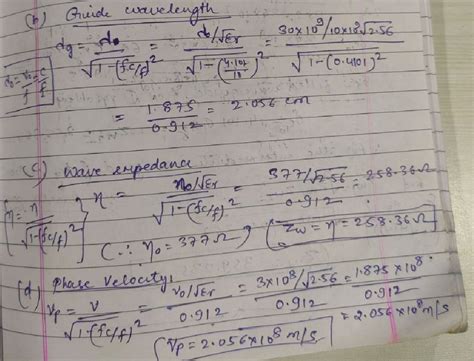 (b) Guide wavelength
λg = λ0 / √1-(fc/f)² = λ0/√εr / √1-(4.101/10)² = 30×10⁹/10×10⁹√2.56 / √1-(0.4101)²
= 1.875 / 0.912 = 2.056 cm
(c) Wave impedance
[η = η / √1-(fc/f)²] η = η0/√εr / √1-(fc/f)² = 377/√2.56 / 0.912 = 258.36Ω
(∵ η0 = 377Ω) Zw = η = 258.36Ω
(d) Phase Velocity:
Vp = V / √1-(fc/f)² = V0/√εr / 0.912 = 3×10⁸/√2.56 / 0.912 = 1.875×10⁸ / 0.912
= 2.056×10⁸ m/s
Vp = 2.056×10⁸ m/s